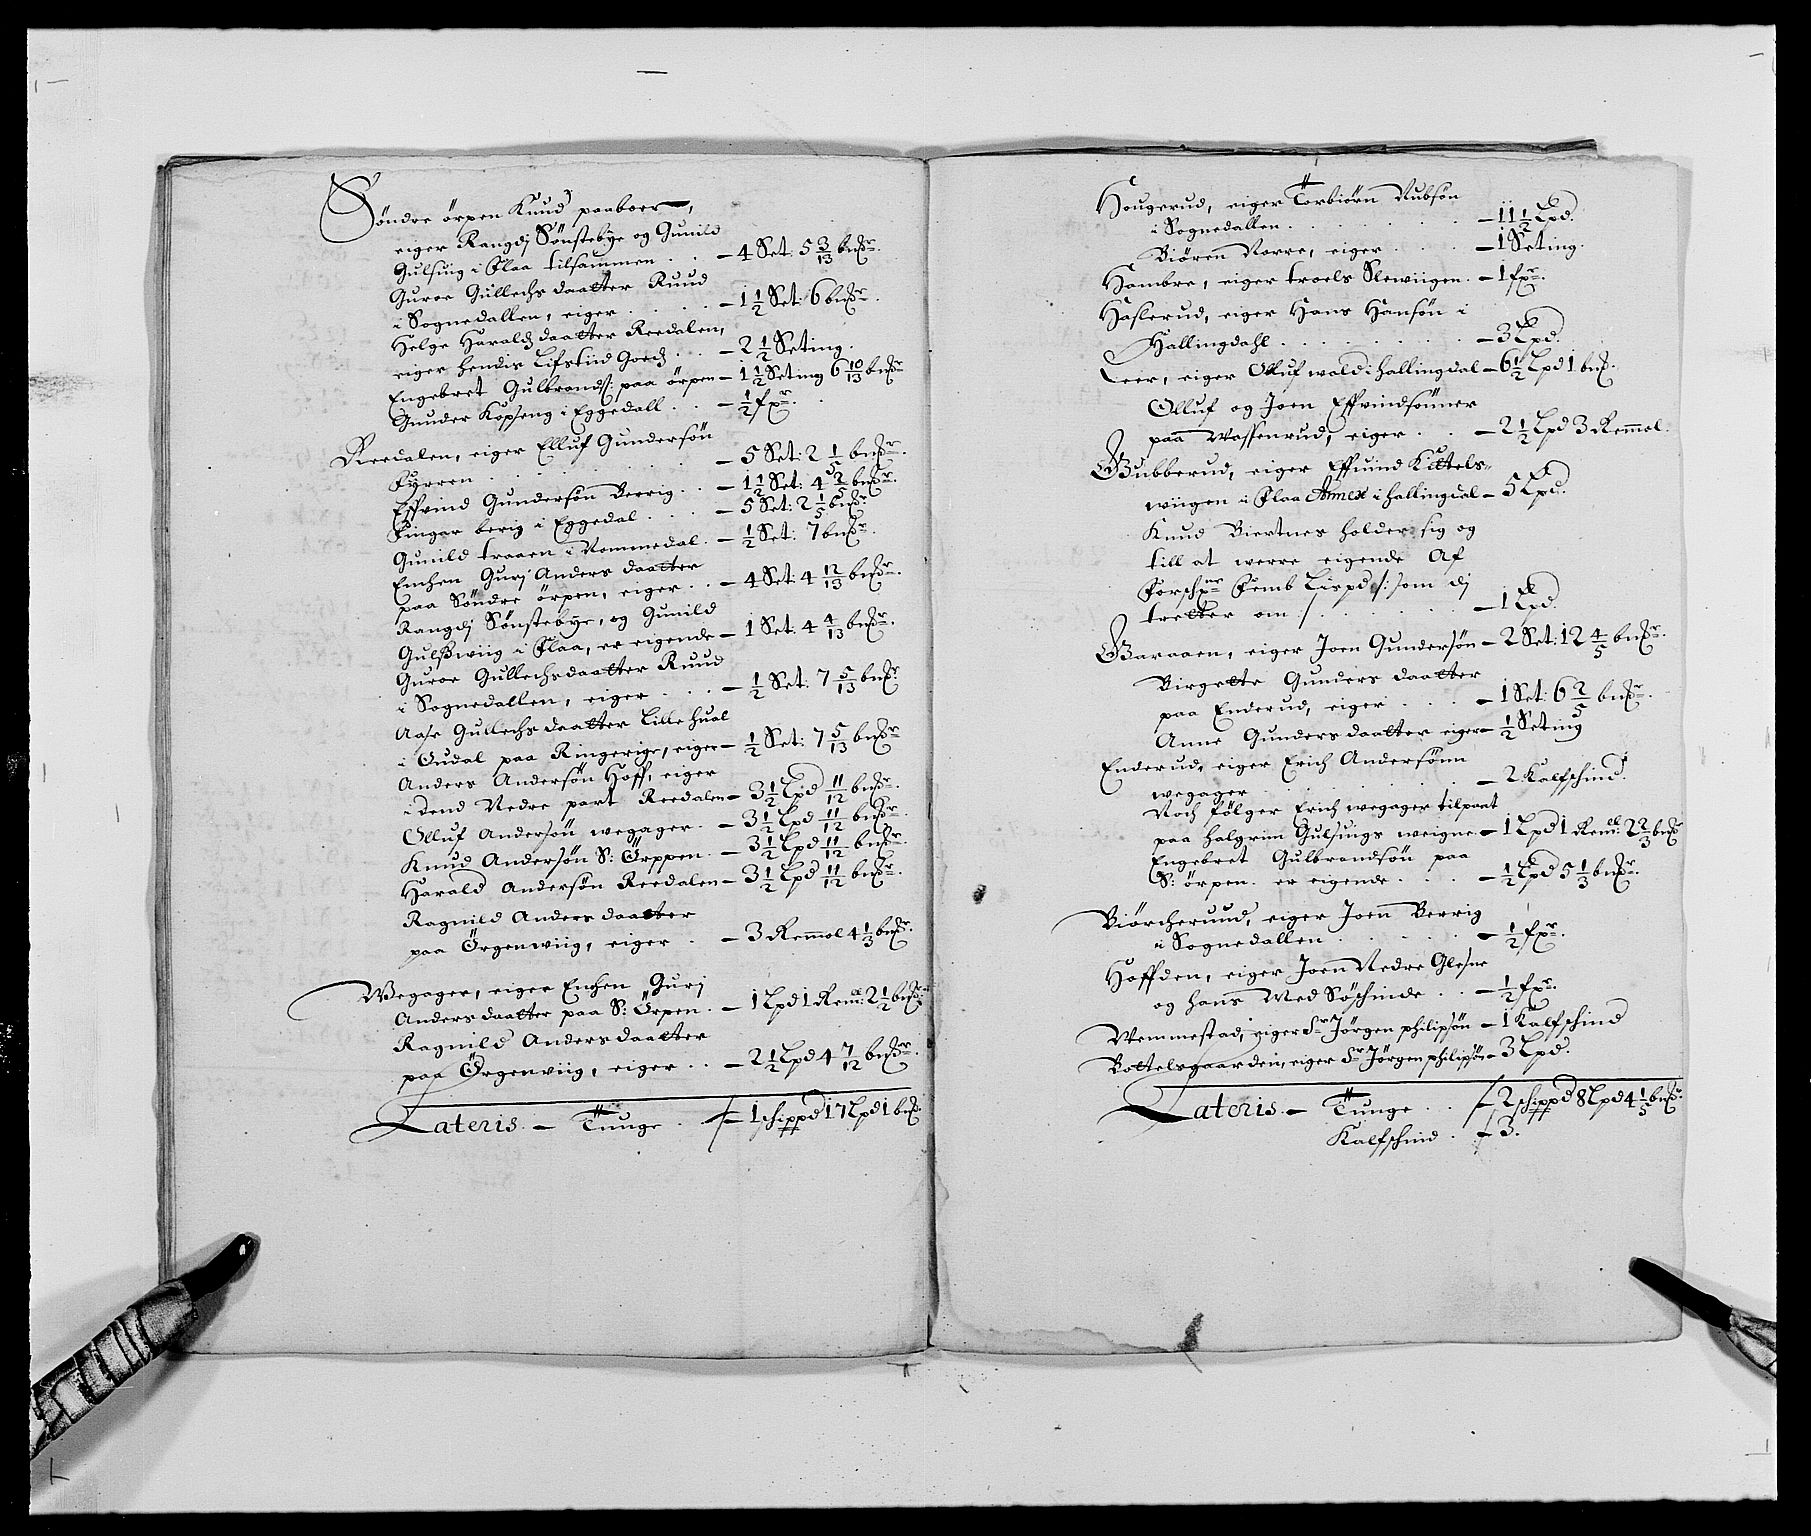 Søndre ørpen Knud paaboer,
eiger Rangdj Sønstebye og Gunild
Gulsuig i Flaa tilsammen . . – 4 Set: 5 3/13 bnßr.
Guroe Gullechs daatter Ruud
i Sognedallen, eiger . . . . – 1 1/2 Set: 6 bnßr.
Helge Haralds daatter Reedalen,
eiger hendis Lifstiid Goeds . . – 2 1/2 Seting.
Engebret Gulbrands: paa ørpen – 1 1/2 Seting 6 10/13 bnßr
Gunder Kopseng i Eggedall . . – 1/2 fxr.
Reedalen, eiger Elluf Gundersøn
Fyrren . . . . . . – 5 Set: 2 1/5 bnßr.
Effvind Gundersøn Beerig . . – 1 1/2 Set: 4 2/5 bnßr.
Fingar berig i Eggedal . . . – 5 Set: 2 1/5 bnßr
Gunild traaen i Rommedal. – 1/2 Set: 7 bnßr.
Enchen Gurj Anders daatter
paa Søndre ørpen, eiger . . – 4 Set: 4 12/13 bnßr.
Rangdj Sønstebye, og Gunild
Gulßwiig i Flaa, er eigende – 1 Set: 4 4/13 bnßr.
Guroe Gullechsdaatter Ruud
i Sognedallen, eiger . . . – 1/2 Set: 7 5/13 bnßr
Aase Gullechsdaatter Lille hual
i Oudal paa Ringerige, eiger – 1/2 Set: 7 5/13 bnßr
Anders Andersøn Hoff, eiger
i dend Nedre part Reedalen – 3 1/2 Lpd 11/12 bnßr.
Olluf Andersøn wegager . – 3 1/2 Lpd 11/12 bnßr.
Knud Andersøn S: Ørppen . – 3 1/2 Lpd 11/12 bnßr.
Harald Andersøn Reedalen – 3 1/2 Lpd 11/12 bnßr.
Ragnild Anders daatter
paa Ørgenwiig, eiger . – 3 Remol 4 1/3 bnßr.
Wegager, eiger Enchen Gurj
Anders daatter paa S: Ørpen . – 1 Lpd 1 Rem: 2 1/2 bnßr
Ragnild Andersdaatter
paa Ørgenviig, eiger . . – 2 1/2 Lpd 4 7/12 bnßr.
Lateris – Tunge . . – 1 schippd 17 Lpd 1 bnß
Hougerud, eiger Torbiørn Rubsøn
i Sognedallen . . . . . . – 11 1/2 Lpd.
Biøren Norre, eiger . . . . – 1 Seting.
Hambre, eiger troels Slewiigen . – 1 fxr.
Haslerud, eiger Hans Hansøn i
Hallingdahl . . . . . . . . – 3 Lpd.
Leer, eiger Olluf wold i hallingdal – 6 1/2 Lpd 1 bnß.
Olluf og Joen Effvindsønner
paa Woffenrud, eiger . . – 2 1/2 Lpd 3 Remol.
Gubberud, eiger Effuind Kittels-
wiigen i Flaa Annex i hallingdal – 5 Lpd.
Knud Biertnes holder sig og
till at werre eigende Af
Forschne Femb Lispd /: som dj
tretter om / . . . . . . – 1 Lpd.
Garaaen, eiger Joen Gundersøn – 2 Set: 12 4/5 bnßr.
Birgette Gunders daatter
paa Enderud, eiger . . . . – 1 Set: 6 2/5 bnßr.
Anne Gundersdaatter eiger – 1/2 Seting
Enderud, eiger Erich Andersønn
wegager . . . . . . – 2 Kalfschind.
Noch følger Erich wegager tilpaat
paa halgrim Gulsuigs weigne – 1 Lpd 1 Rem: 2 2/3 bnß
Engebret Gulbrandsøn paa
S: ørpen. er eigende . . . – 1/2 Lpd 5 1/3 bnßr.
Biørcherund, eiger Joen Berrig
i Sognedallen . . . . . – 1/2 fxr.
Hoffden, eiger Joen Nedre Glesne
og hans Med Søschinde . . – 1/2 fxr.
Wemmestad, eiger Sr Jørgen philipsøn – 1 Kalfschind
Bottelsgaardein, eiger Sr Jørgen philipsøn – 3 Lpd.
Lateris – Tunge . . – 2 schippd 8 Lpd 4 1/5 bnßr
Kalfschind . – 3.